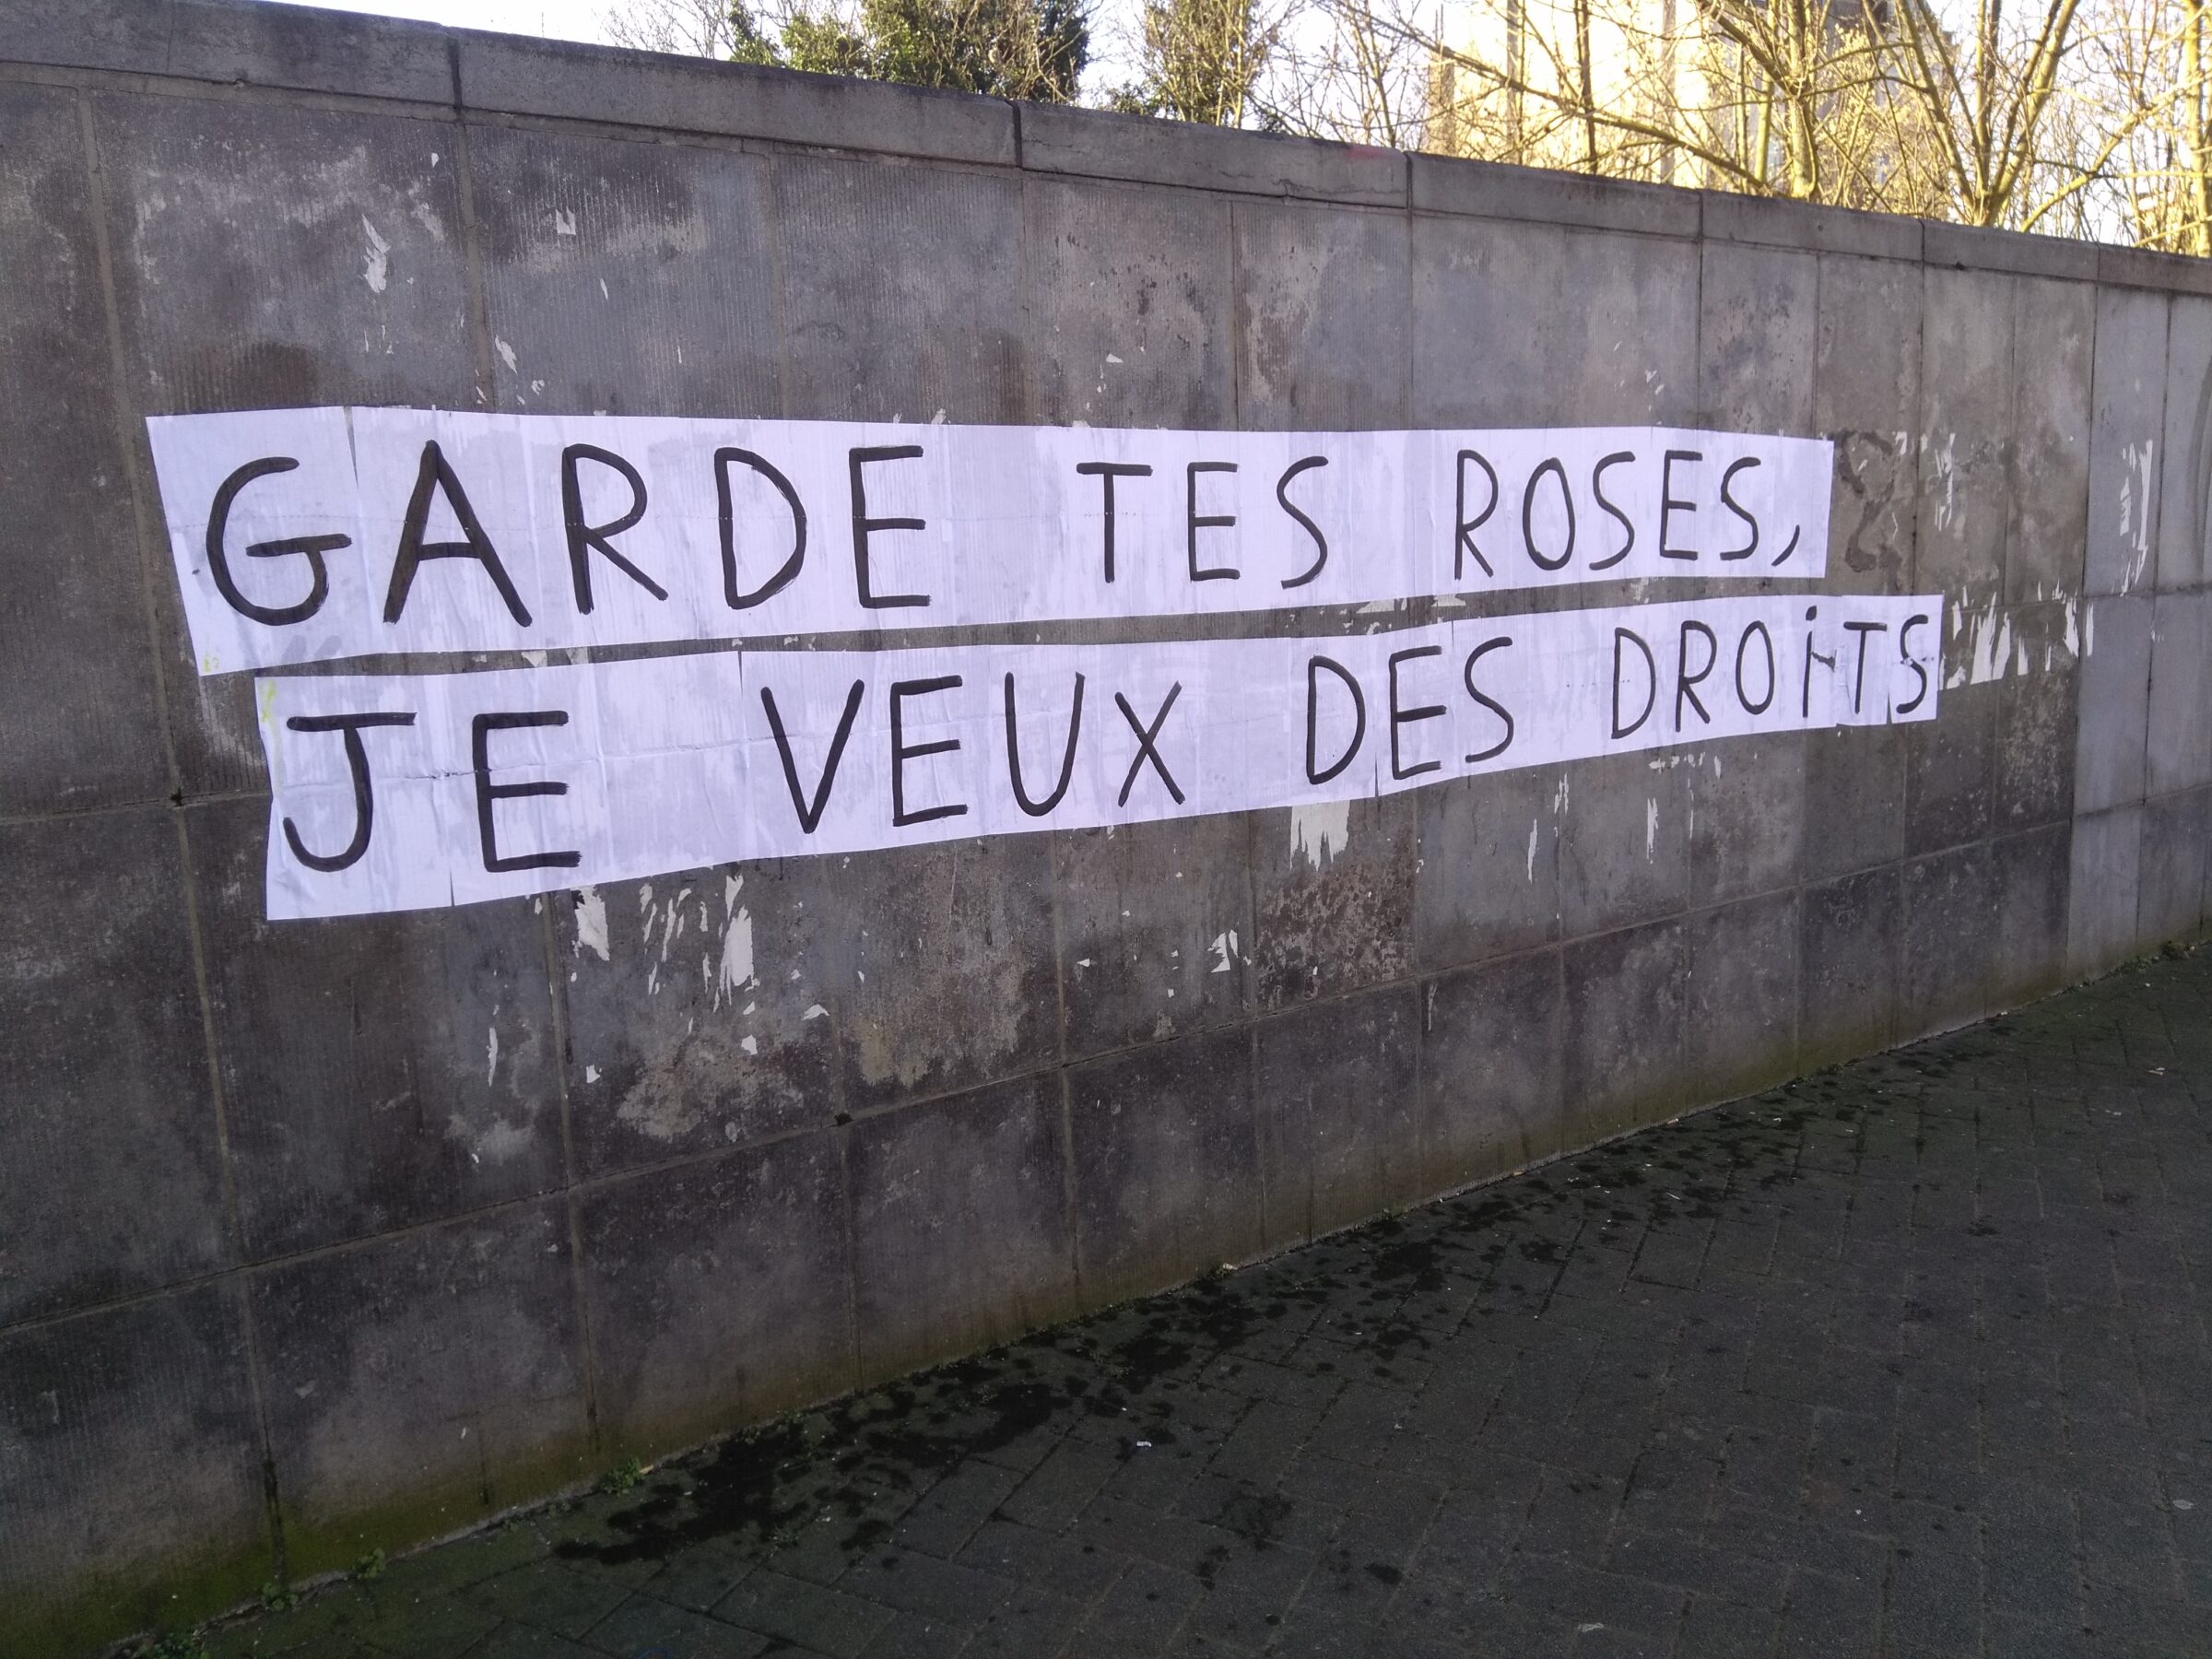 GARDE TES ROSES,
JE VEUX DES DROiTS